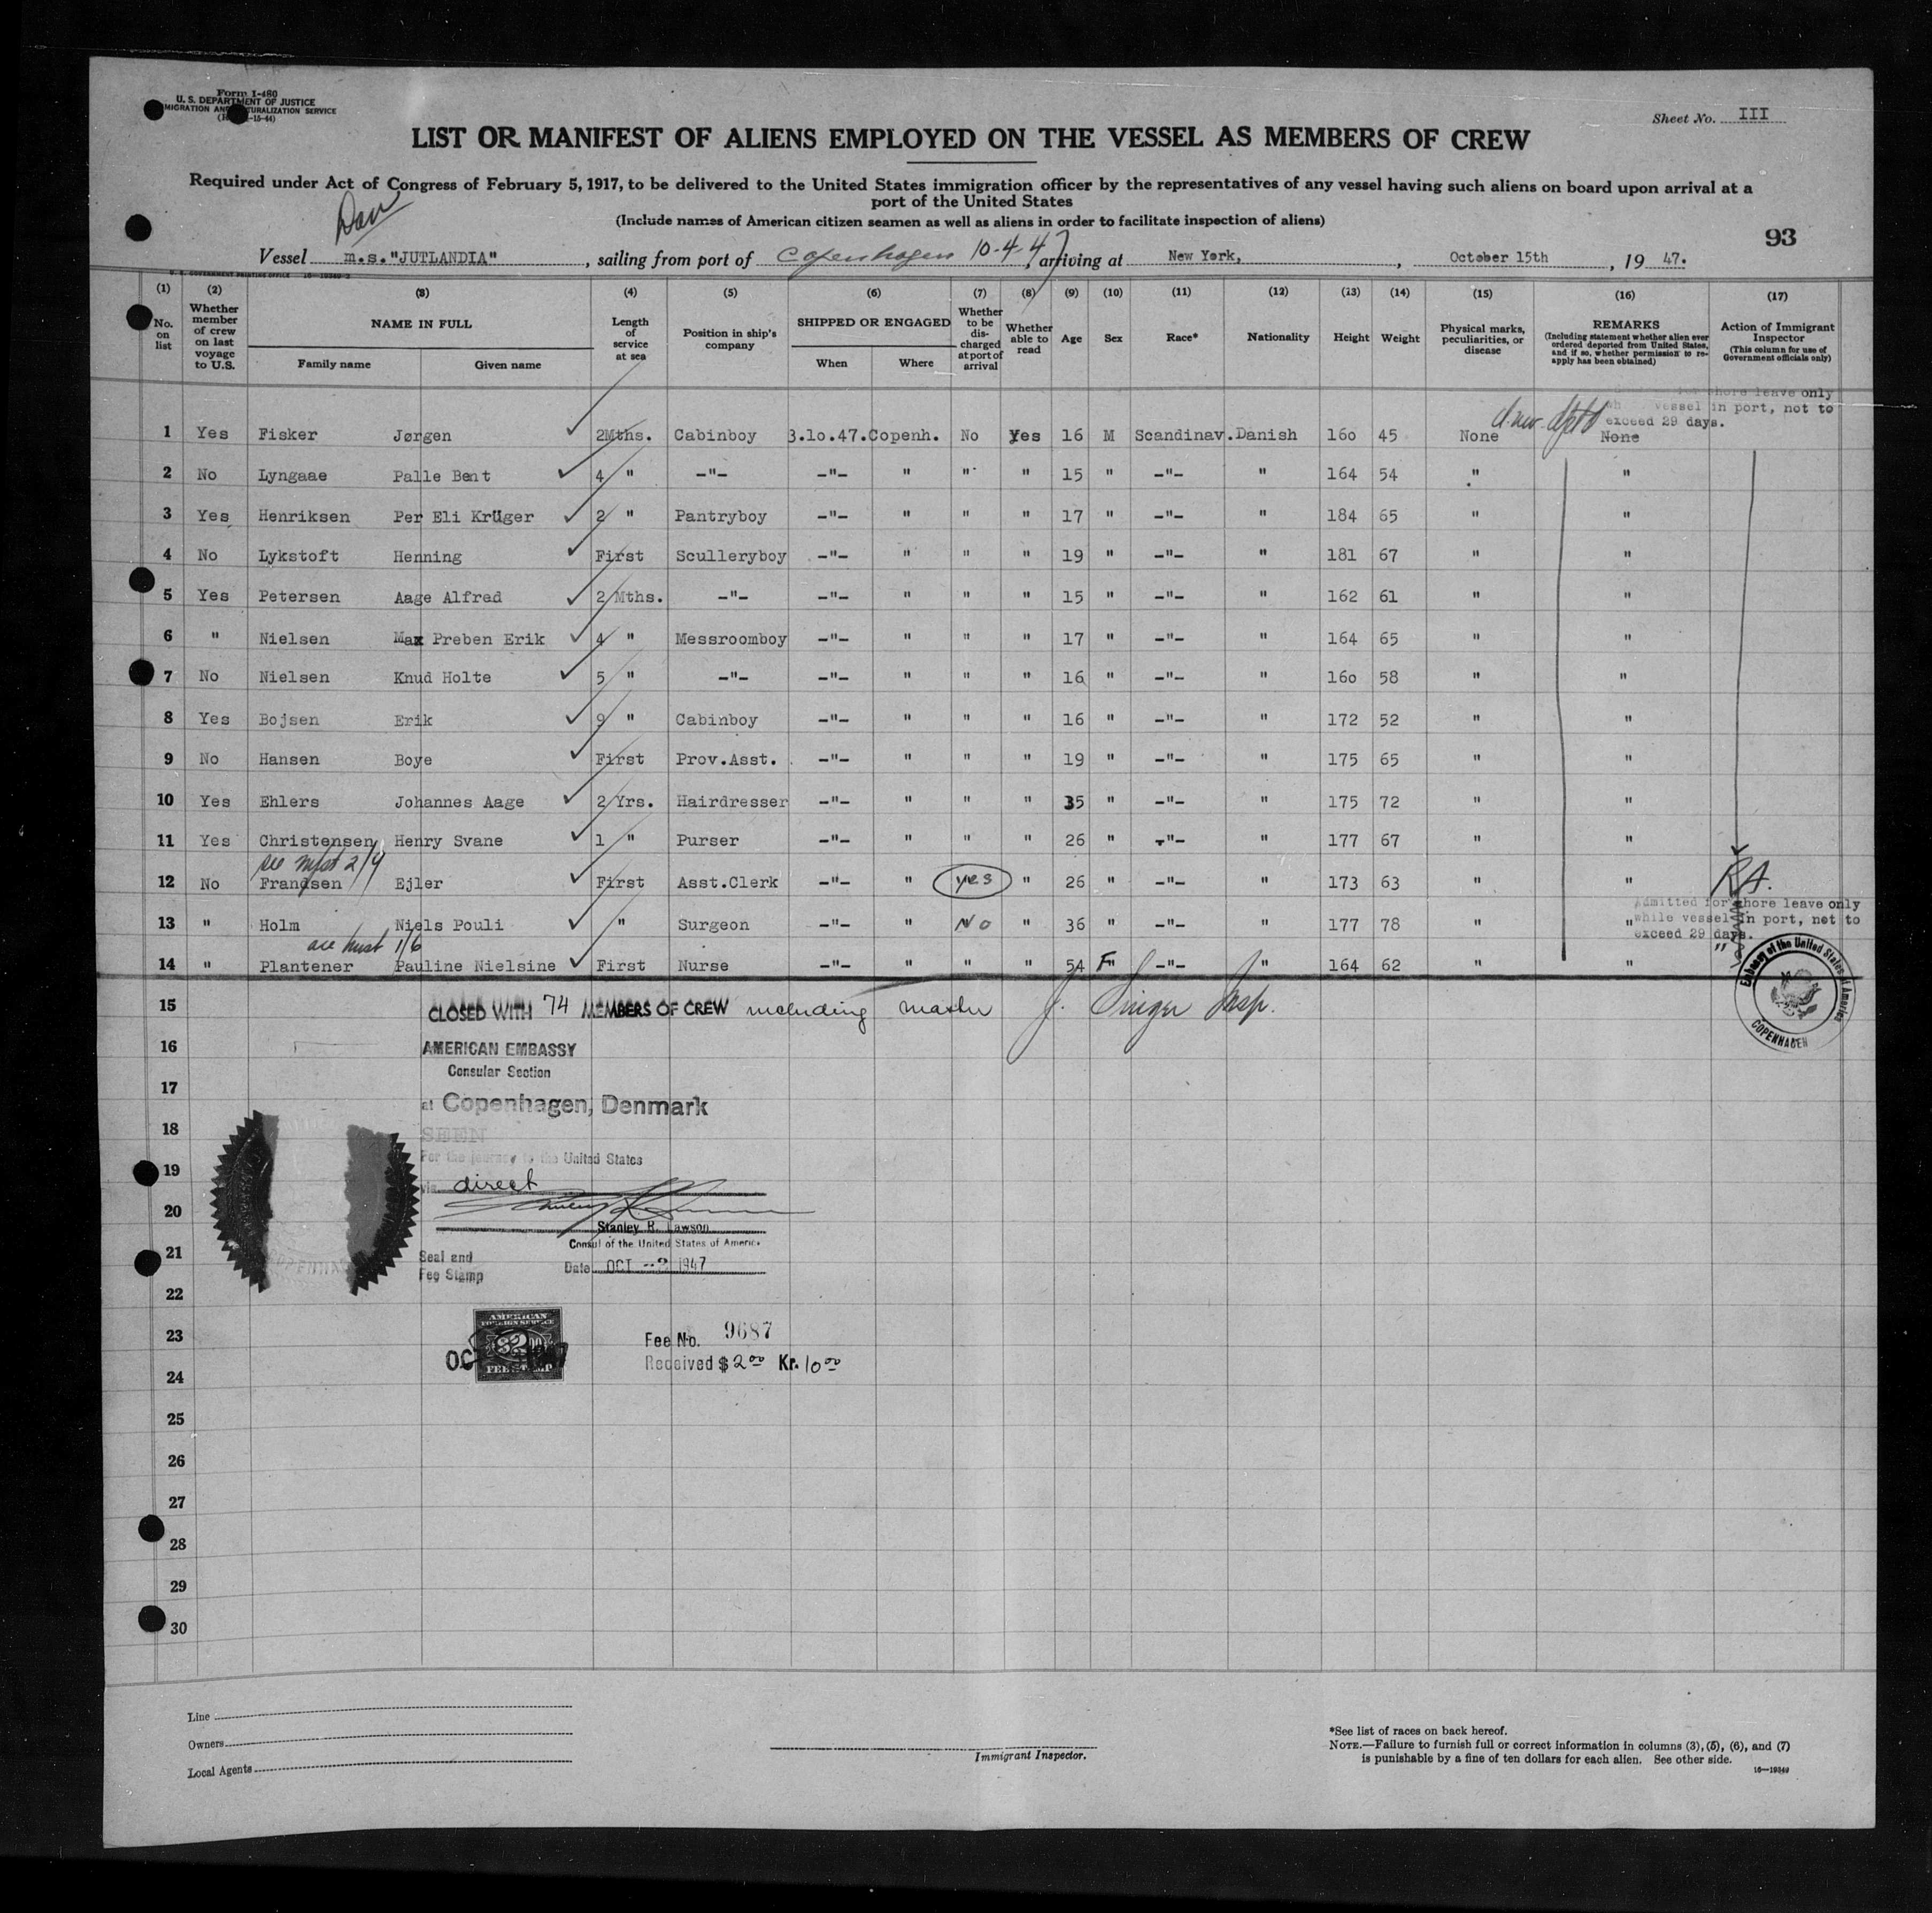 Form I-480
U. S. DEPARTMENT OF JUSTICE
IMMIGRATION AND NATURALIZATION SERVICE
Sheet No. III
LIST OR MANIFEST OF ALIENS EMPLOYED ON THE VESSEL AS MEMBERS OF CREW
Required under Act of Congress of February 5, 1917, to be delivered to the United States immigration officer by the representatives of any vessel having such aliens on board upon arrival at a
port of the United States
(Include names of American citizen seamen as well as aliens in order to facilitate inspection of aliens)
Dan
93
Vessel m.s."JUTLANDIA", sailing from port of Copenhagen 10-4-47, arriving at New York, , October 15th, 19 47.
U. S. GOVERNMENT PRINTING OFFICE 16—19349-2
(1) (2) (3) (4) (5) (6) (7) (8) (9) (10) (11) (12) (13) (14) (15) (16) (17)
No. on list
Whether member of crew on last voyage to U.S.
NAME IN FULL
Family name Given name
Length of service at sea
Position in ship's company
SHIPPED OR ENGAGED
When Where
Whether to be discharged at port of arrival
Whether able to read
Age Sex Race* Nationality Height Weight
Physical marks, peculiarities, or disease
REMARKS
(Including statement whether alien ever ordered deported from United States, and if so, whether permission to reapply has been obtained)
Action of Immigrant Inspector
(This column for use of Government officials only)
shore leave only
vessel in port, not to
exceed 29 days.
1 Yes Fisker Jørgen 2Mths. Cabinboy 3.1o.47. Copenh. No Yes 16 M Scandinav. Danish 16o 45 None None
2 No Lyngaae Palle Bent 4 " -"- -"- " " " 15 " -"- " 164 54 " "
3 Yes Henriksen Per Eli Krüger 2 " Pantryboy -"- " " " 17 " -"- " 184 65 " "
4 No Lykstoft Henning First Sculleryboy -"- " " " 19 " -"- " 181 67 " "
5 Yes Petersen Aage Alfred 2 Mths. -"- -"- " " " 15 " -"- " 162 61 " "
6 " Nielsen Max Preben Erik 4 " Messroomboy -"- " " " 17 " -"- " 164 65 " "
7 No Nielsen Knud Holte 5 " -"- -"- " " " 16 " -"- " 16o 58 " "
8 Yes Bojsen Erik 9 " Cabinboy -"- " " " 16 " -"- " 172 52 " "
9 No Hansen Boye First Prov.Asst. -"- " " " 19 " -"- " 175 65 " "
10 Yes Ehlers Johannes Aage 2 Yrs. Hairdresser -"- " " " 35 " -"- " 175 72 " "
11 Yes Christensen Henry Svane 1 " Purser -"- " " " 26 " -"- " 177 67 " "
see mfst 2/4
12 No Frandsen Ejler First Asst.Clerk -"- " yes " 26 " -"- " 173 63 " " RA.
Admitted for shore leave only
while vessel in port, not to
exceed 29 days.
13 " Holm Niels Pouli " Surgeon -"- " No " 36 " -"- " 177 78 " "
1/6
14 " Plantener Pauline Nielsine First Nurse -"- " " " 54 F -"- " 164 62 " " "
Embassy of the United States of America
COPENHAGEN
15 CLOSED WITH 74 MEMBERS OF CREW including master J. Singer Insp.
16 AMERICAN EMBASSY
Consular Section
17 at Copenhagen, Denmark
18 SEEN
For the journey to the United States
19 via direct
20 Stanley R. Lawson
Consul of the United States of America
21 Seal and
Fee Stamp
Date OCT -2 1947
22
23 AMERICAN
FOREIGN SERVICE
$2.00
FEE STAMP
Fee No. 9687
Received $2.00 Kr. 10.00
24
25
26
27
28
29
30
Line
Owners
Local Agents
Immigrant Inspector.
*See list of races on back hereof.
NOTE.—Failure to furnish full or correct information in columns (3), (5), (6), and (7)
is punishable by a fine of ten dollars for each alien. See other side.
16—19349